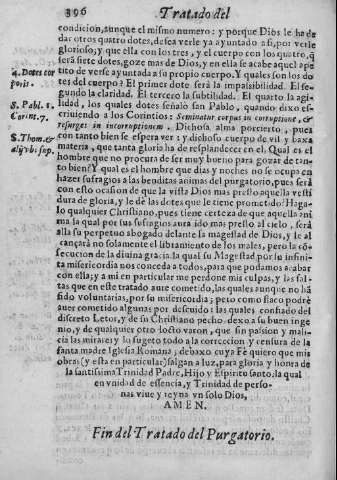 396 Tratado del
condicion, aunque el mismo numero: y porque Dios le ha de
dar otros quatro dotes, dessea verle ya ayuntado a si, por verle
glorioso, y que ella con los tres, y el cuerpo con los quatro, q̃
serà siete dotes, goze mas de Dios, y en ella se acabe aquel ape
tito de verse ayuntada a su propio cuerpo. Y quales son los do
4. Dotes cor
poris.
tes del cuerpo? El primer dote serà la impasibilidad. El se-
gundo la claridad. El tercero la subtilidad. El quarto la agi
S. Pabl. 1.
Corint. 7.
lidad, los quales dotes señalò san Pablo, quando dixo es-
criuiendo a los Corintios: Seminatur corpus in corruptione, &
resurget in incorruptionem. Dichosa alma por cierto, pues
S. Thom. &
alij vbi sup.
con tanto bien se espera ver: y dichoso cuerpo de vil y baxa
materia, que tanta gloria ha de resplandecer en el. Qual es el
hombre que no procura de ser muy bueno para gozar de tan-
to bien? Y qual es el hombre que dias y noches no se ocupa en
hazer sufragios a las benditas animas del purgatorio, pues serà
con esto ocasion de que la vista Dios mas presto aquella vesti
dura de gloria, y le dè las dotes que le tiene prometido? Haga-
lo qualquier Christiano, pues tiene certeza de que aquella ani
ma la qual por sus sufragios aura ido mas presto al cielo, serà
alla su perpetuo abogado delante la magestad de Dios, y le al
cançarà no solamente el libramiento de los males, pero la cõ-
secucion de la diuina gracia. la qual su Magestad por su infini-
ta misericordia nos conceda a todos, para que podamos acabar
con ella; y a mi en particular me perdone mis culpas, y las fal-
tas que en este tratado aure cometido, las quales aunque no hã
sido voluntarias, por su misericordia; peto como flaco podrè
auer cometido algunas por descuido: las quales confiado del
discreto Letor, y de su Christiano pecho, dexo a su buen inge
nio, y de qualquier otro docto varon, que sin passion y mali-
cia las mirare; y lo sugeto todo a la correccion y censura de la
santa madre Iglesia Romana; debaxo cuya Fè quiero que mis
obras (y esta en particular) salgan a luz, para gloria y honra de
la santissima Trinidad Padre, Hijo y Espiritu santo, la qual
en vnidad de essencia, y Trinidad de perso-
nas viue y reyna vn solo Dios,
AMEN.
Fin del Tratado del Purgatorio.